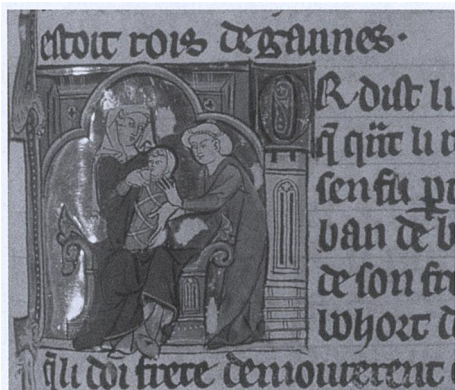 estoit rois de gannes·
OR dist li
q̃ q̃nt li r
sen fu p̲
ban de b
de son fre
bohort d
q̃ li doi frere demourerent